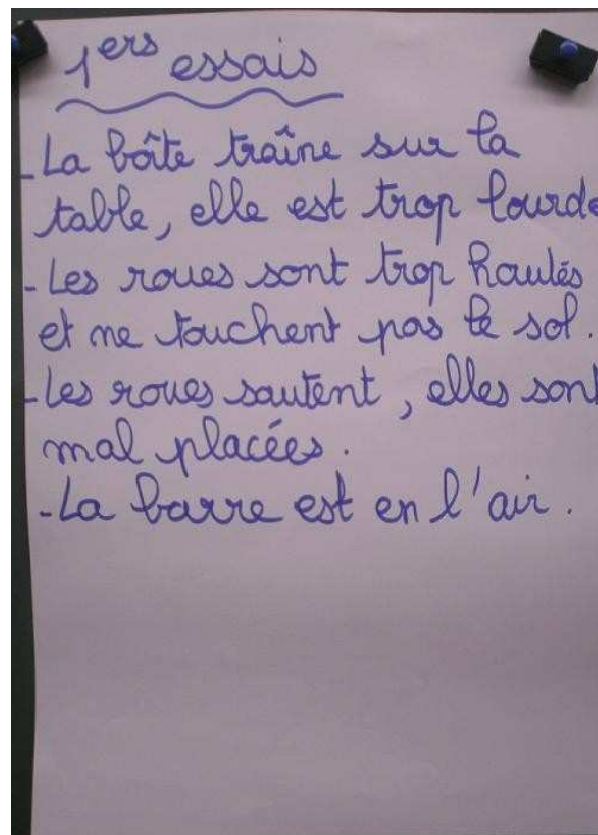 1ers essais
- La boîte traîne sur la
table, elle est trop lourde
- Les roues sont trop hautes
et ne touchent pas le sol.
- Les roues sautent, elles sont
mal placées.
- La barre est en l'air.